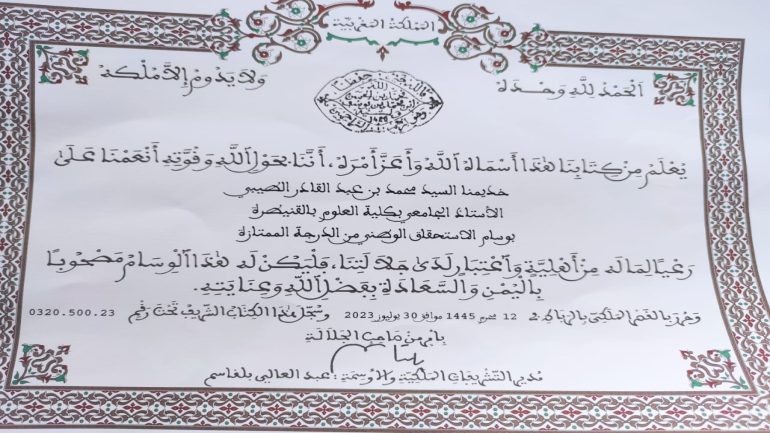 المملكة المغربية
الحمد لله وحده
ولا يدوم إلا ملكه
يُعْلَمُ مِنْ كِتَابِنَا هَذَا أَسْمَاهُ اللَّهُ وَأَعَزَّ أَمْرَهُ، أَنَّنَا بِحَوْلِ اللَّهِ وَقُوَّتِهِ أَنْعَمْنَا عَلَى
خديمنا السيد محمد بن عبد القادر الصيبي
الأستاذ الجامعي بكلية العلوم بالقنيطرة
بوسام الاستحقاق الوطني من الدرجة الممتازة
رَعْيًا لِمَا لَهُ مِنْ أَهْلِيَّةٍ وَاعْتِبَارٍ لَدَى جَلَالَتِنَا، فَلْيَكُنْ لَهُ هَذَا الْوِسَامُ مَصْحُوبًا
بِالْيُمْنِ وَالسَّعَادَةِ بِفَضْلِ اللَّهِ وَعِنَايَتِهِ.
وحرر بالقصر الملكي بالرباط في 12 محرم 1445 موافق 30 يوليوز 2023 وسجل هذا الكتاب الشريف تحت رقم 0320.500.23
بأمر من صاحب الجلالة
مدير التشريفات الملكية والأوسمة: عبد العالي بلقاسم